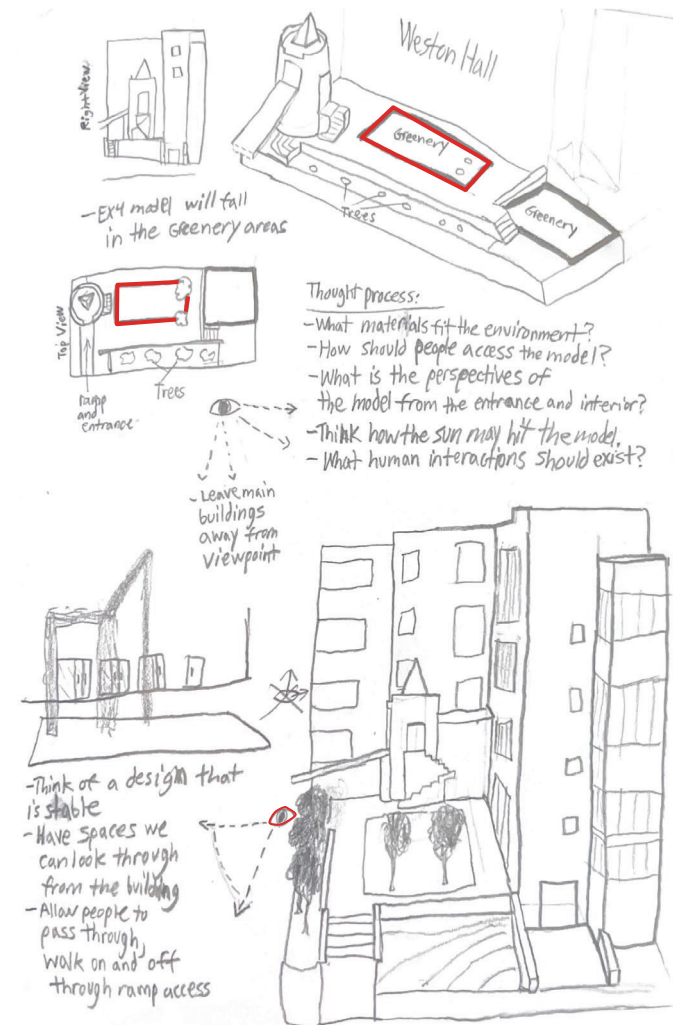 Right View
Weston Hall
Greenery
Trees
Greenery
-EX4 model will fall
in the Greenery areas
Top View
Trees
ramp
and
entrance
Thought process:
-What materials fit the environment?
-How should people access the model?
-What is the perspectives of
the model from the entrance and interior?
-Think how the sun may hit the model.
-What human interactions should exist?
-Leave main
buildings
away from
viewpoint
-Think of a design that
is stable
-Have spaces we
can look through
from the building
-Allow people to
pass through,
walk on and off
through ramp access